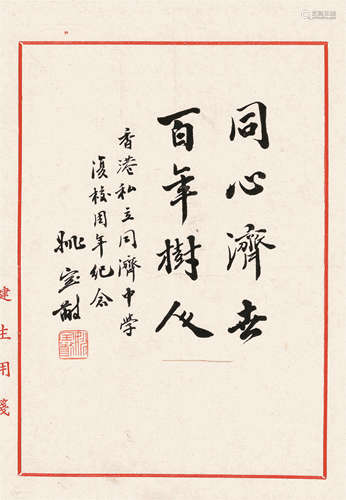 同心濟世
百年樹人
香港私立同濟中学
復校周年紀念
姚宝猷
建生用箋